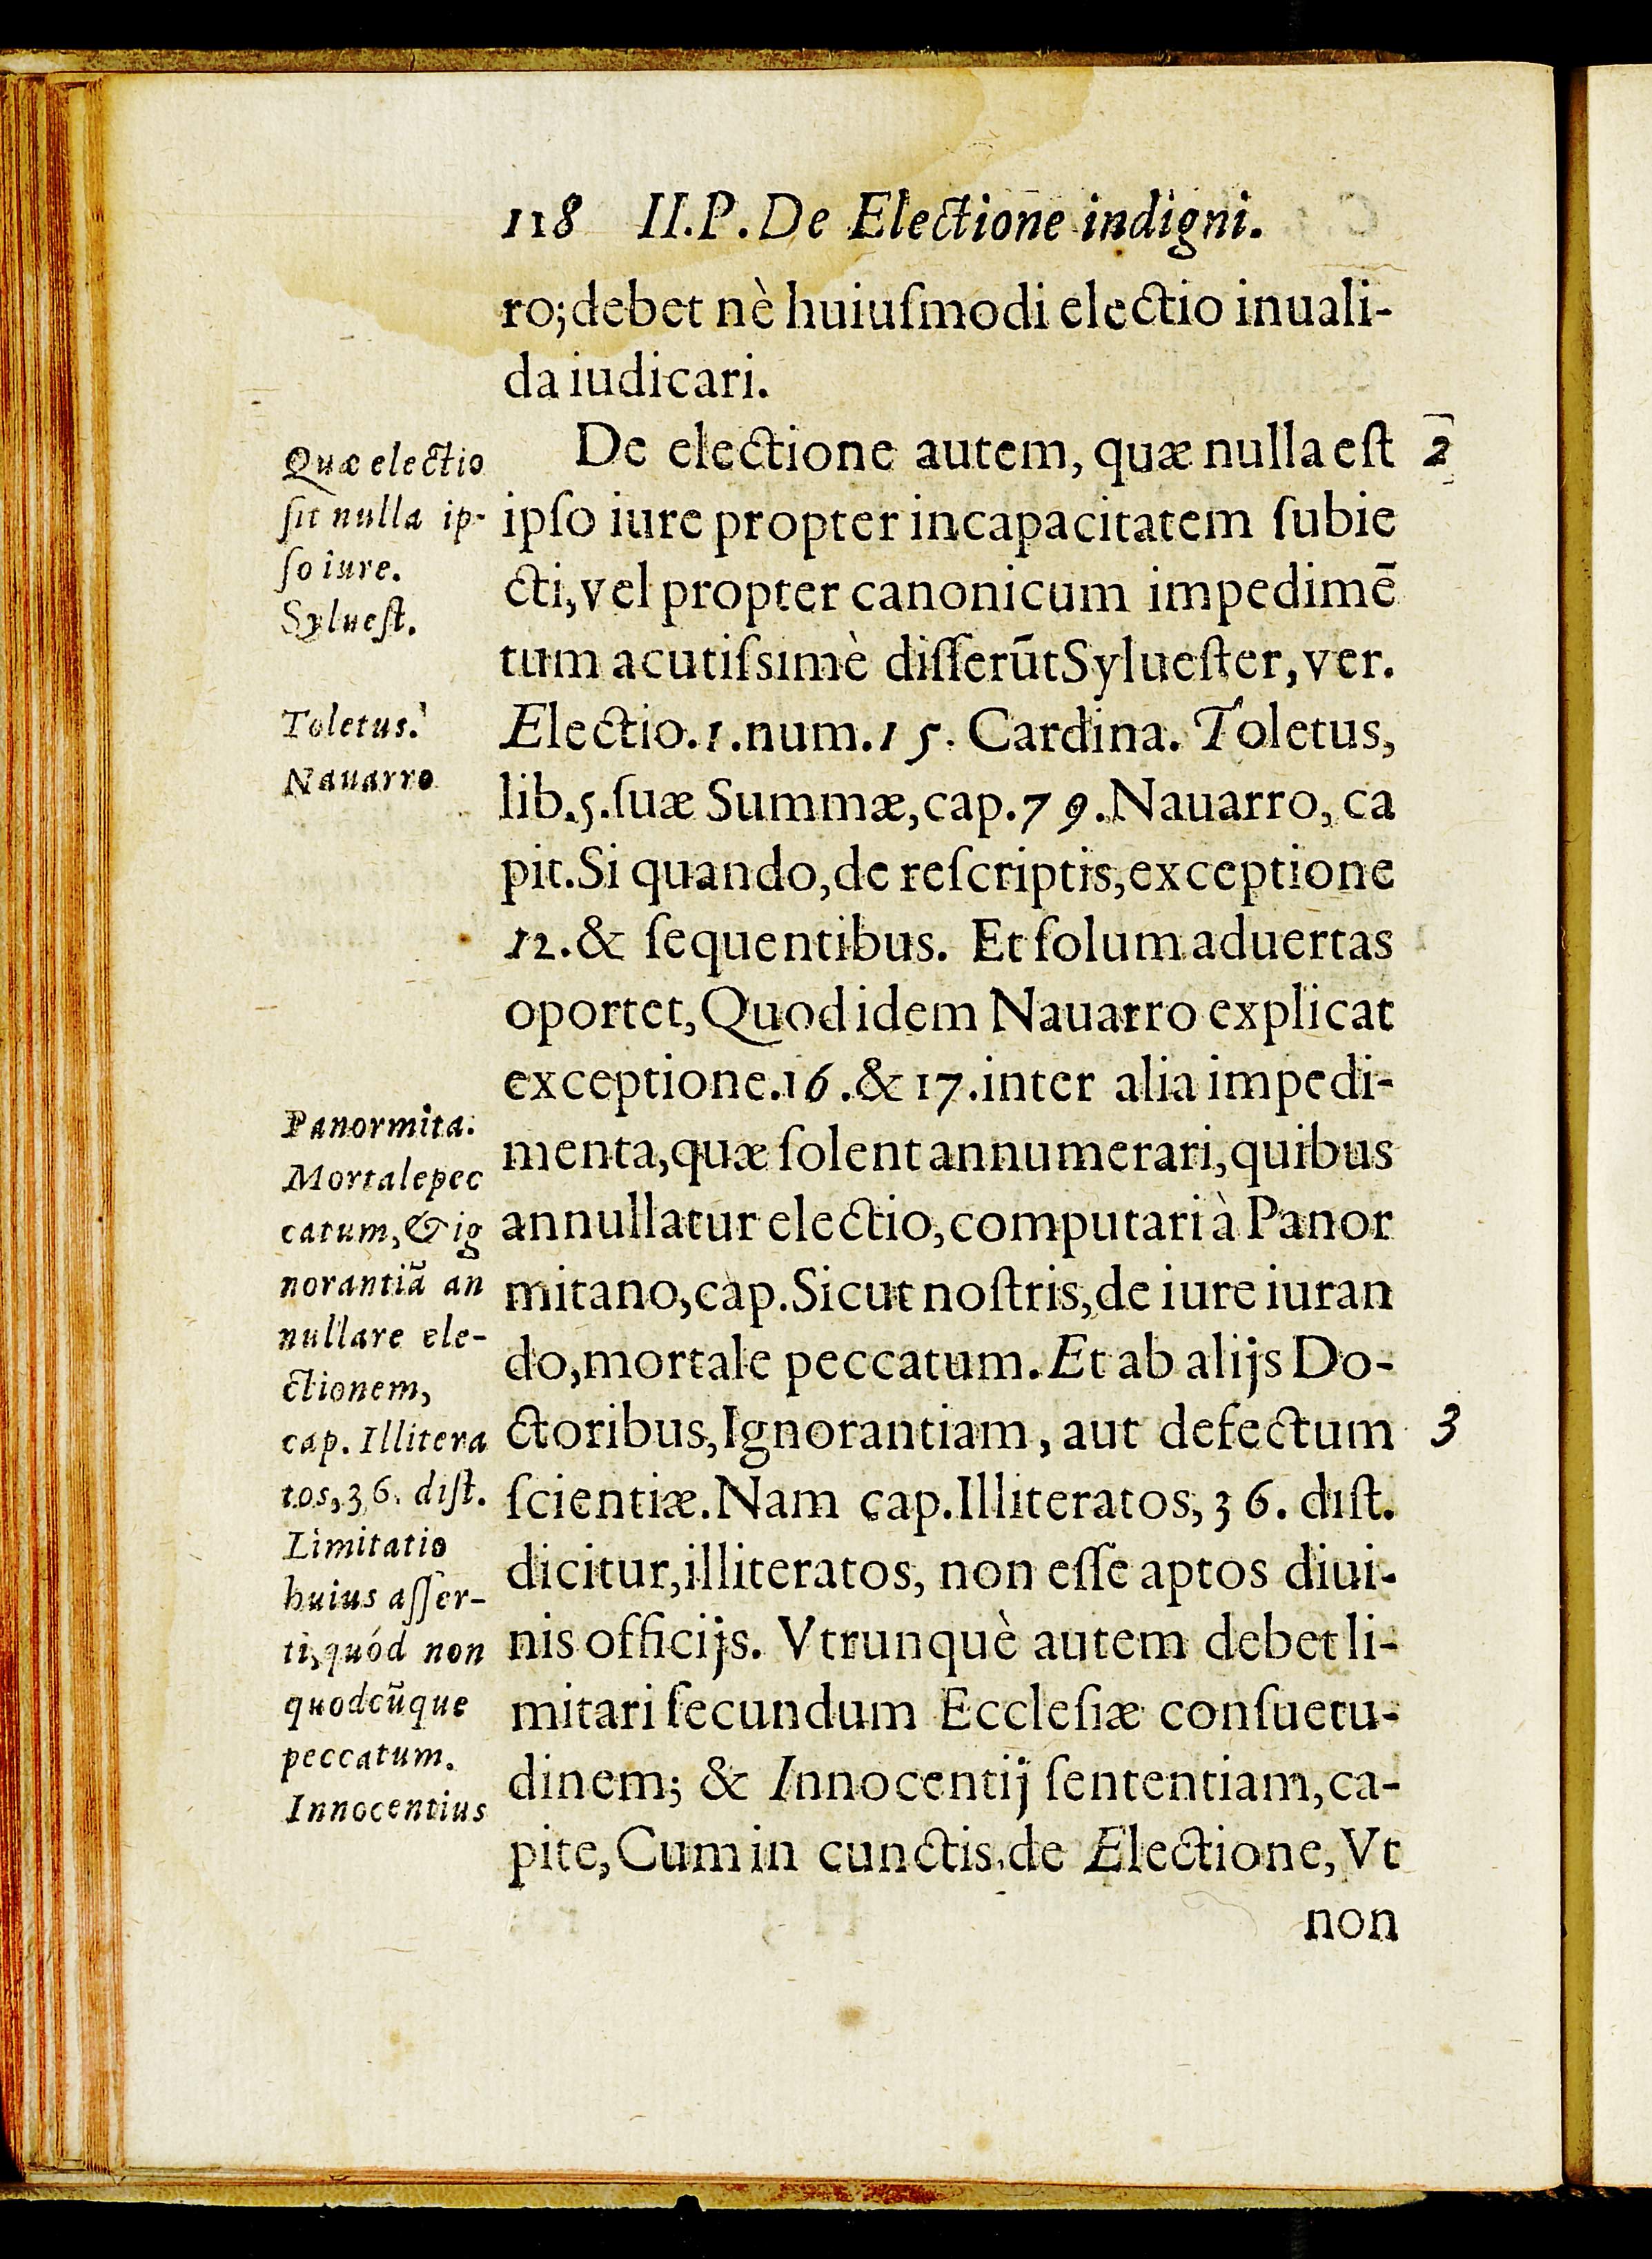 118 II.P. De Electione indigni.
ro; debet nè huiuſmodi electio inuali-
da iudicari.
De electione autem, quæ nulla eſt
ipſo iure propter incapacitatem ſubie
cti, vel propter canonicum impedimē
tum acutiſsimè diſſerūt Sylueſter, ver.
Electio.1.num.15. Cardina. Toletus,
lib.5.ſuæ Summæ, cap.79.Nauarro, ca
pit.Si quando, de reſcriptis, exceptione
12.& ſequentibus. Et ſolum aduertas
oportet, Quod idem Nauarro explicat
exceptione.16.& 17.inter alia impedi-
menta, quæ ſolent annumerari, quibus
annullatur electio, computari à Panor
mitano, cap.Sicut noſtris, de iure iuran
do, mortale peccatum. Et ab alijs Do-
ctoribus, Ignorantiam, aut defectum
ſcientiæ. Nam cap.Illiteratos, 36. diſt.
dicitur, illiteratos, non eſſe aptos diui-
nis officijs. Vtrunquè autem debet li-
mitari ſecundum Eccleſiæ conſuetu-
dinem; & Innocentij ſententiam, ca-
pite, Cum in cunctis. de Electione, Vt
non
Quæ electio
ſit nulla ip-
ſo iure.
Sylueſt.
Toletus.
Nauarro
Panormita.
Mortale pec
catum, & ig
norantiā an
nullare ele-
ctionem,
cap. Illitera
tos, 36. diſt.
Limitatio
huius aſſer-
ti, quód non
quodcūque
peccatum.
Innocentius
2
3